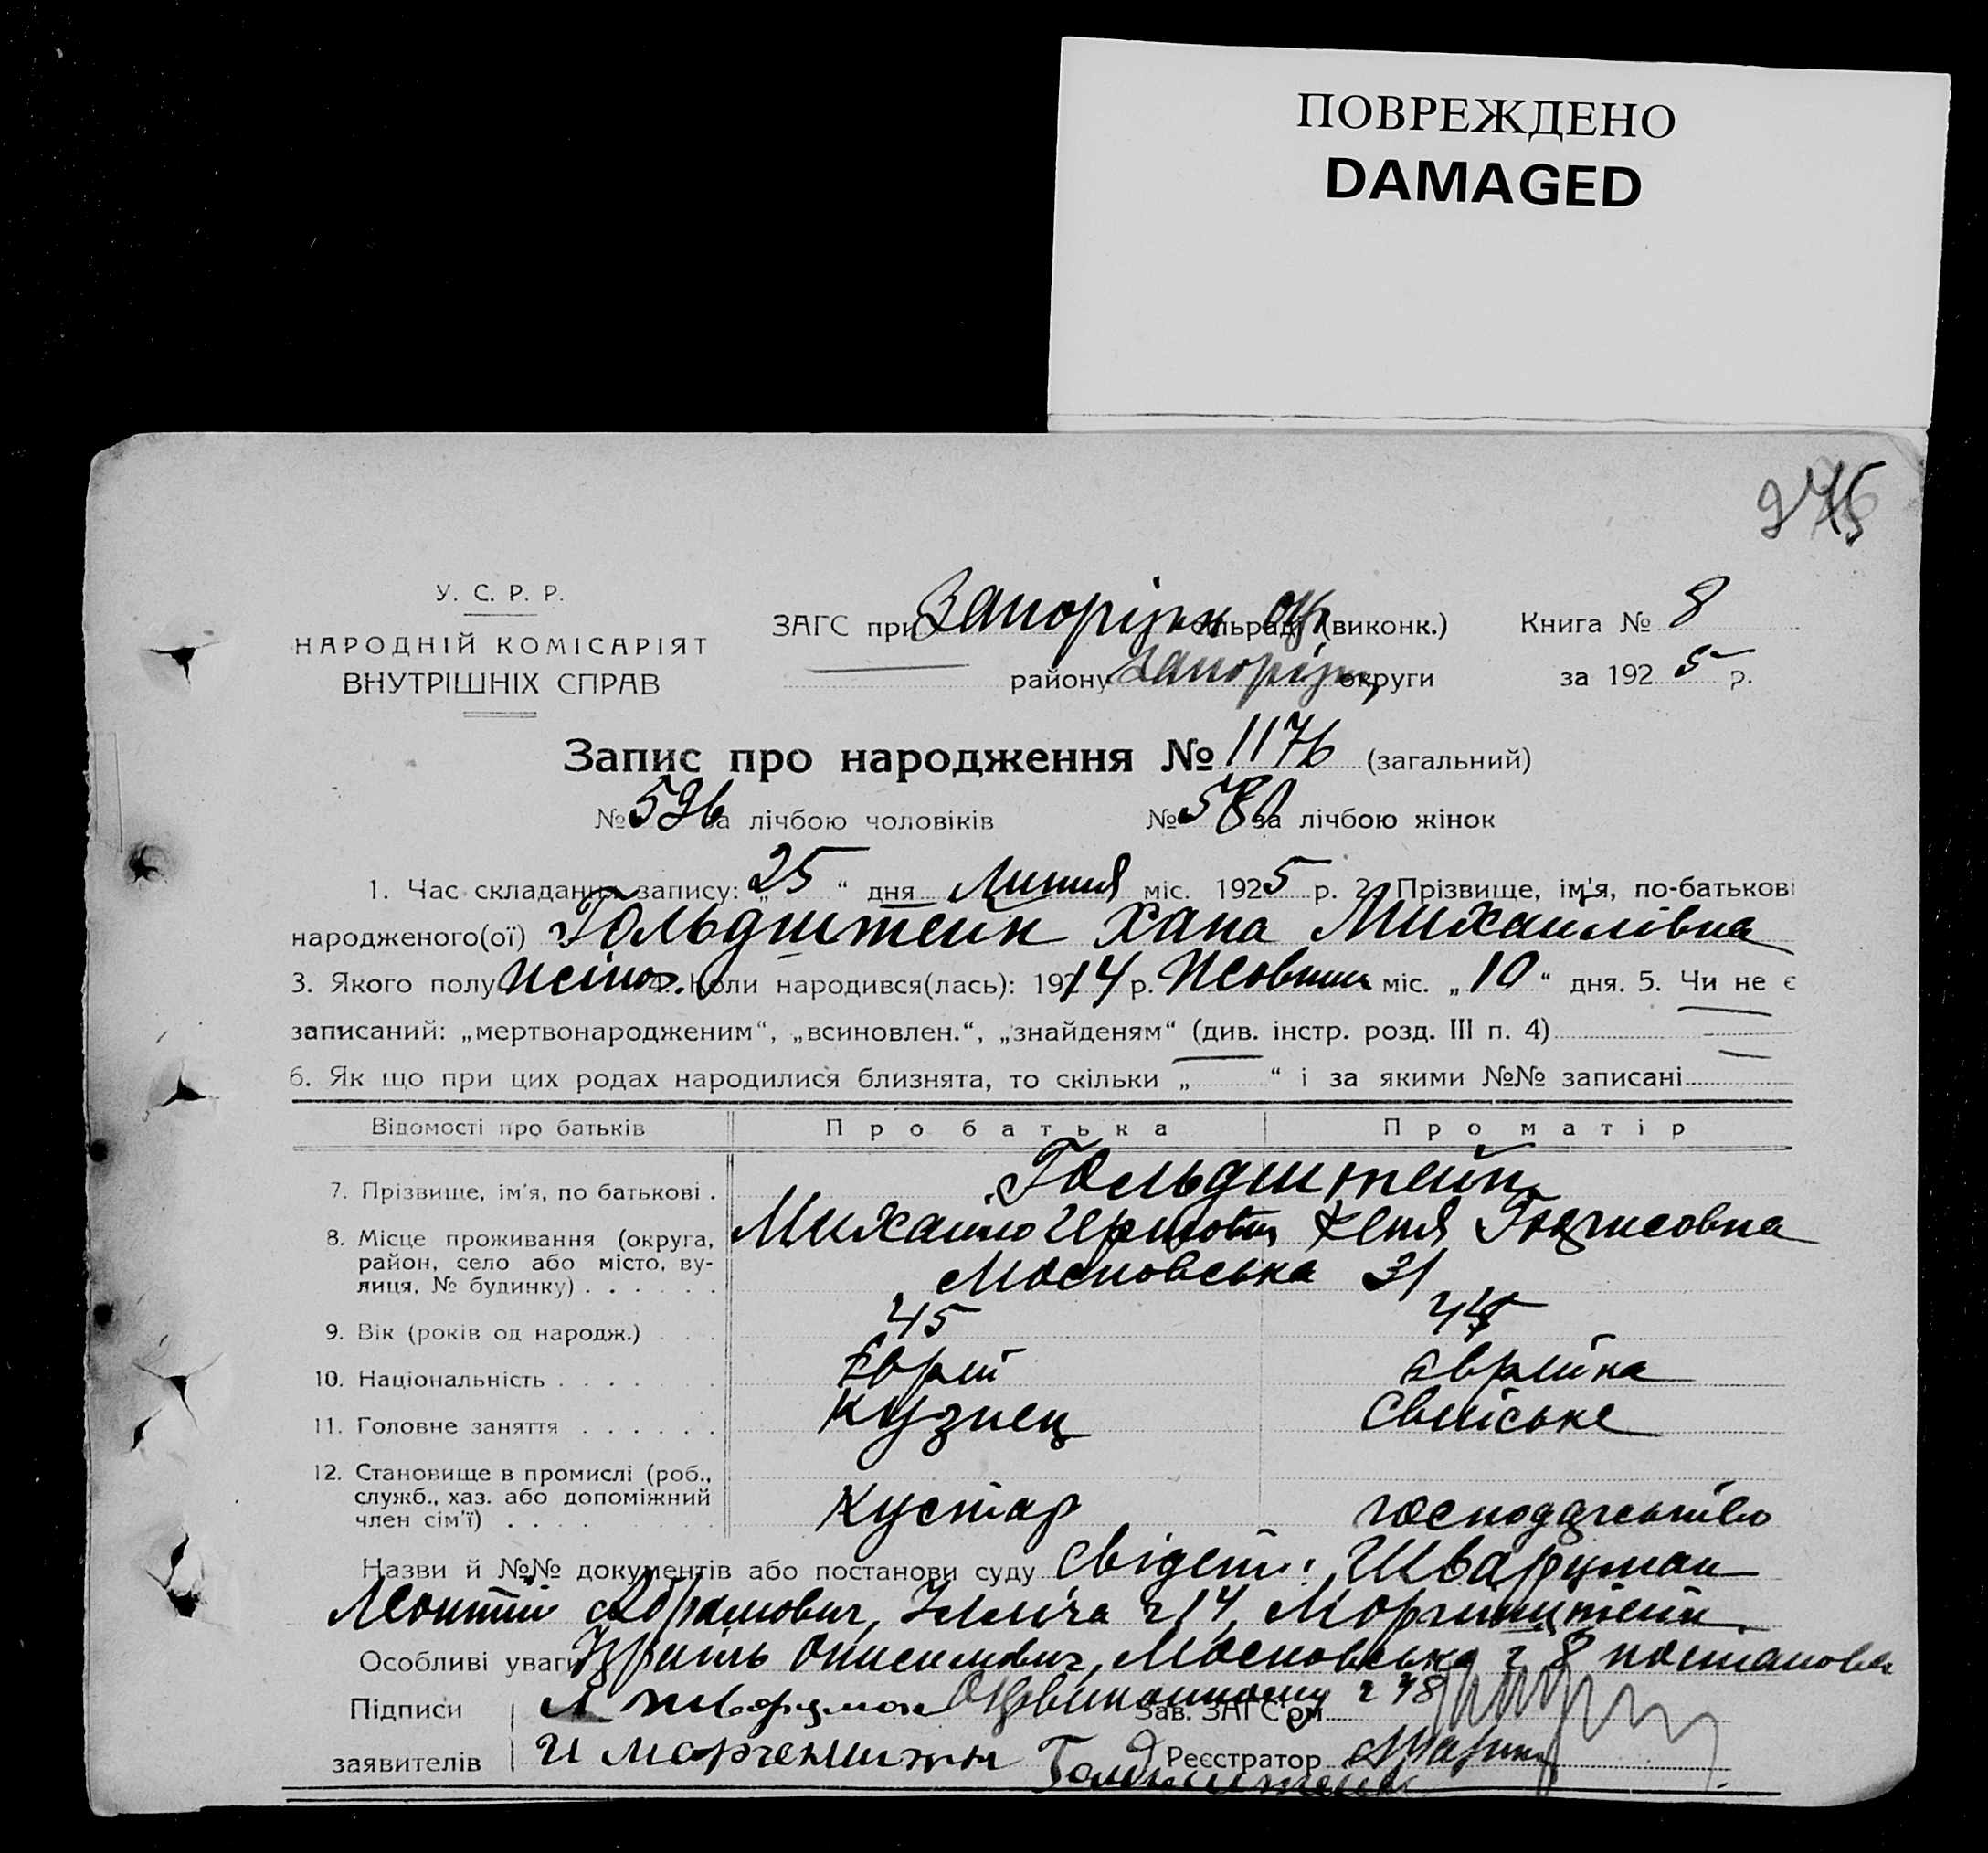 ПОВРЕЖДЕНО
DAMAGED
275
У. С. Р. Р.
НАРОДНІЙ КОМІСАРІЯТ
ВНУТРІШНІХ СПРАВ
ЗАГС при Запорізьк Окр (виконк.) Книга № 8
району Запорізьк округи за 1925 р.
Запис про народження № 1176 (загальний)
№ 596 за лічбою чоловіків № 580 за лічбою жінок
1. Час складання запису: „25“ дня Липня міс. 1925 р. 2. Прізвище, ім'я, по-батькові
народженого(ої) Гольдштейн Хана Михайлівна
3. Якого полу жіноч. 4. Коли народився(лась): 1914 р. Жовтня міс. „10“ дня. 5. Чи не є
записаний: „мертвонародженим“, „всиновлен.“, „знайденям“ (див. інстр. розд. III п. 4)
6. Як що при цих родах народилися близнята, то скільки „ “ і за якими №№ записані
Відомості про батьків Про батька Про матір
7. Прізвище, ім'я, по батькові . Гольдштейн
8. Місце проживання (округа, Михайло Гершович Хеня
район, село або місто, ву- Московська 31
лиця, № будинку)
9. Вік (років од народж.) 45
10. Національність Єврей Єврейка
11. Головне заняття Кузнец Свійське
12. Становище в промислі (роб.,
служб., хаз. або допоміжний Кустар господарство
член сім'ї)
Назви й №№ документів або постанови суду Свідет.: Шварцман
Леонтій Абрамович, Ілліча 214, Моргенштейн
Особливі уваги Ізраїль Московська 2 8 постанова
Підписи Л Шварцман Окрвиконкому 2 48 Зав. ЗАГС'ом
заявителів И Моргенштейн Гольдштейн Реєстратор